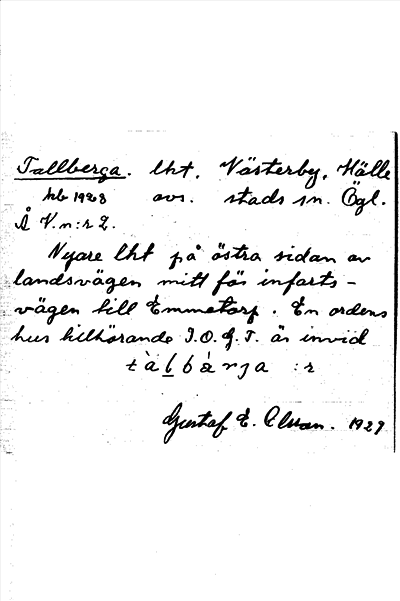 Tallberga. lht, Västerby, Hälle
hb 1928 avs. stads sn. Ögl.
Å V.n:r 2.
Nyare lht på östra sidan av
landsvägen mitt för infarts-
vägen till Emmetorp. En ordens
hus tillhörande I.O.G.T. är invid
tàlbárja :r
Gustaf E. Olsson. 1929